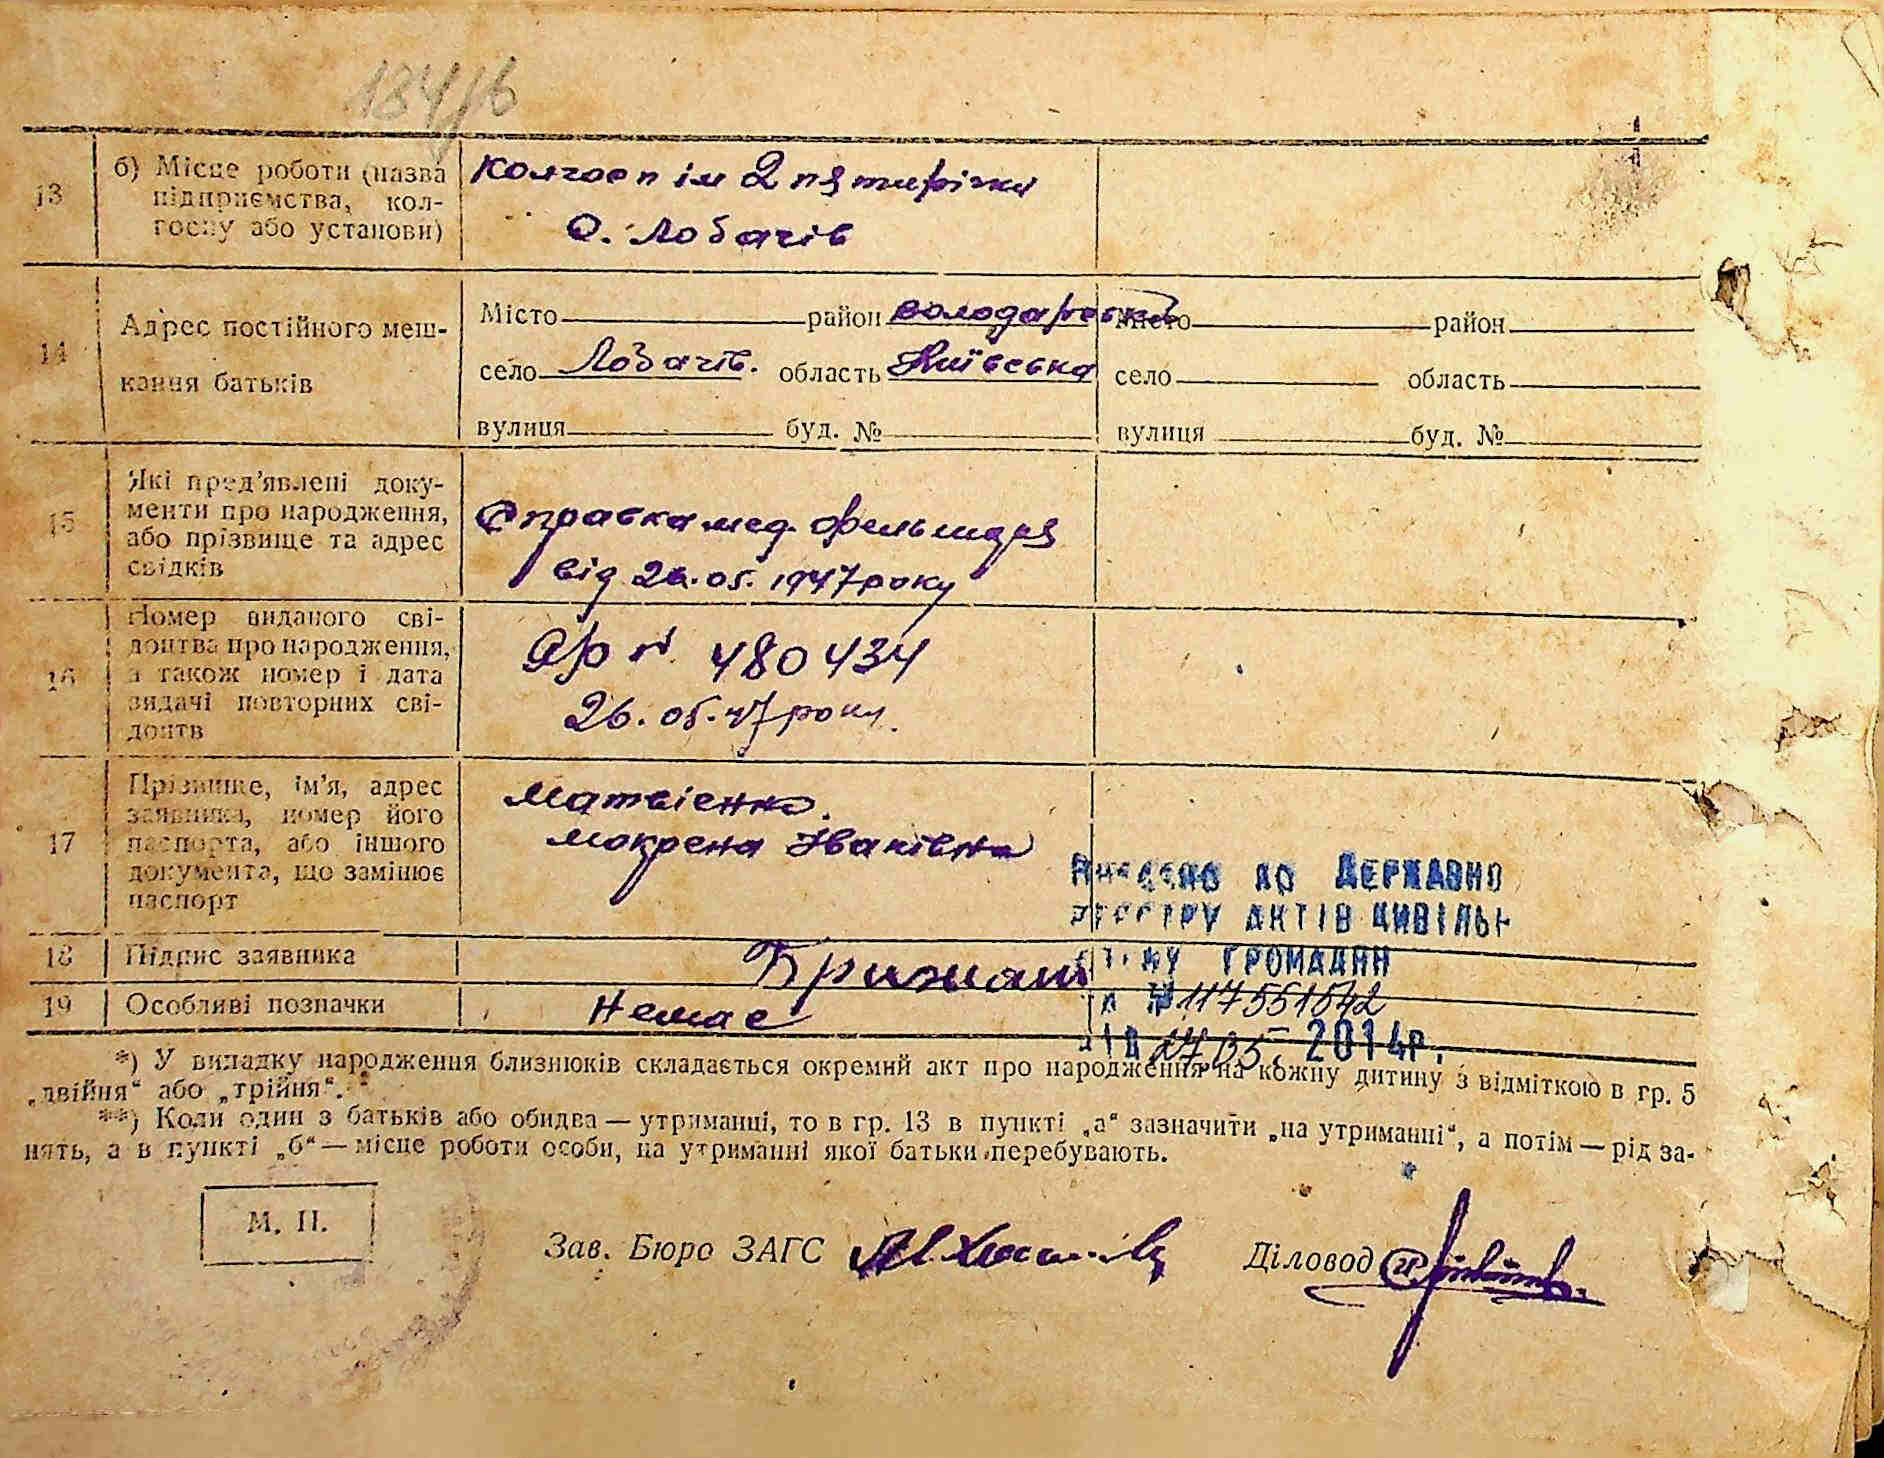 184/б
13
б) Місце роботи (назва
підприємства, кол-
госпу або установи)
Колгосп ім 2 пятирічки
С. Лобачів
14
Адрес постійного меш-
кання батьків
Місто район Володарський
село Лобачів. область Київська
вулиця буд. №
Місто район
село область
вулиця буд. №
15
Які пред'явлені доку-
менти про народження,
або прізвище та адрес
свідків
Справка мед. фельшара
від 26.05.1947 року
16
Номер виданого сві-
доцтва про народження,
а також номер і дата
видачі повторних сві-
доцтв
N 480434
26.05.47 року.
17
Прізвище, ім'я, адрес
заявника, номер його
паспорта, або іншого
документа, що замінює
паспорт
Матвієнко
Мокрена Іванівна
18
Підпис заявника
19
Особливі позначки
Немає
Внесено до Державно
реєстру актів цивільн
стану громадян
за № 117551542
від 27.05. 2014р.
*) У випадку народження близнюків складається окремий акт про народження на кожну дитину з відміткою в гр. 5
„двійня“ або „трійня“.
**) Коли один з батьків або обидва — утриманці, то в гр. 13 в пункті „а“ зазначити „на утриманні“, а потім — рід за-
нять, а в пункті „б“ — місце роботи особи, на утриманні якої батьки перебувають.
М. П.
Зав. Бюро ЗАГС
Діловод